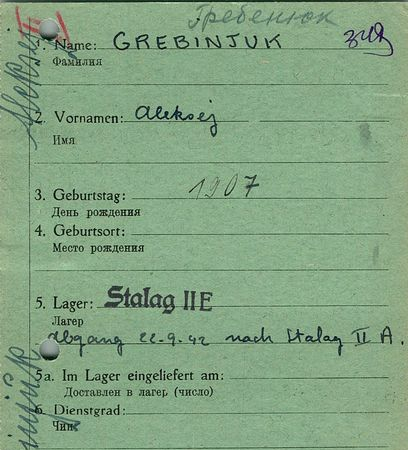 Гребенюк
1. Name: GREBINJUK
Фамилия
2. Vornamen: Aleksej
Имя
3. Geburtstag: 1907
День рождения
4. Geburtsort:
Место рождения
5. Lager: Stalag II E
Лагер
Abgang 22-9-42 nach Stalag II A.
5a. Im Lager eingeliefert am:
Доставлен в лагер (число)
6. Dienstgrad:
Чин: